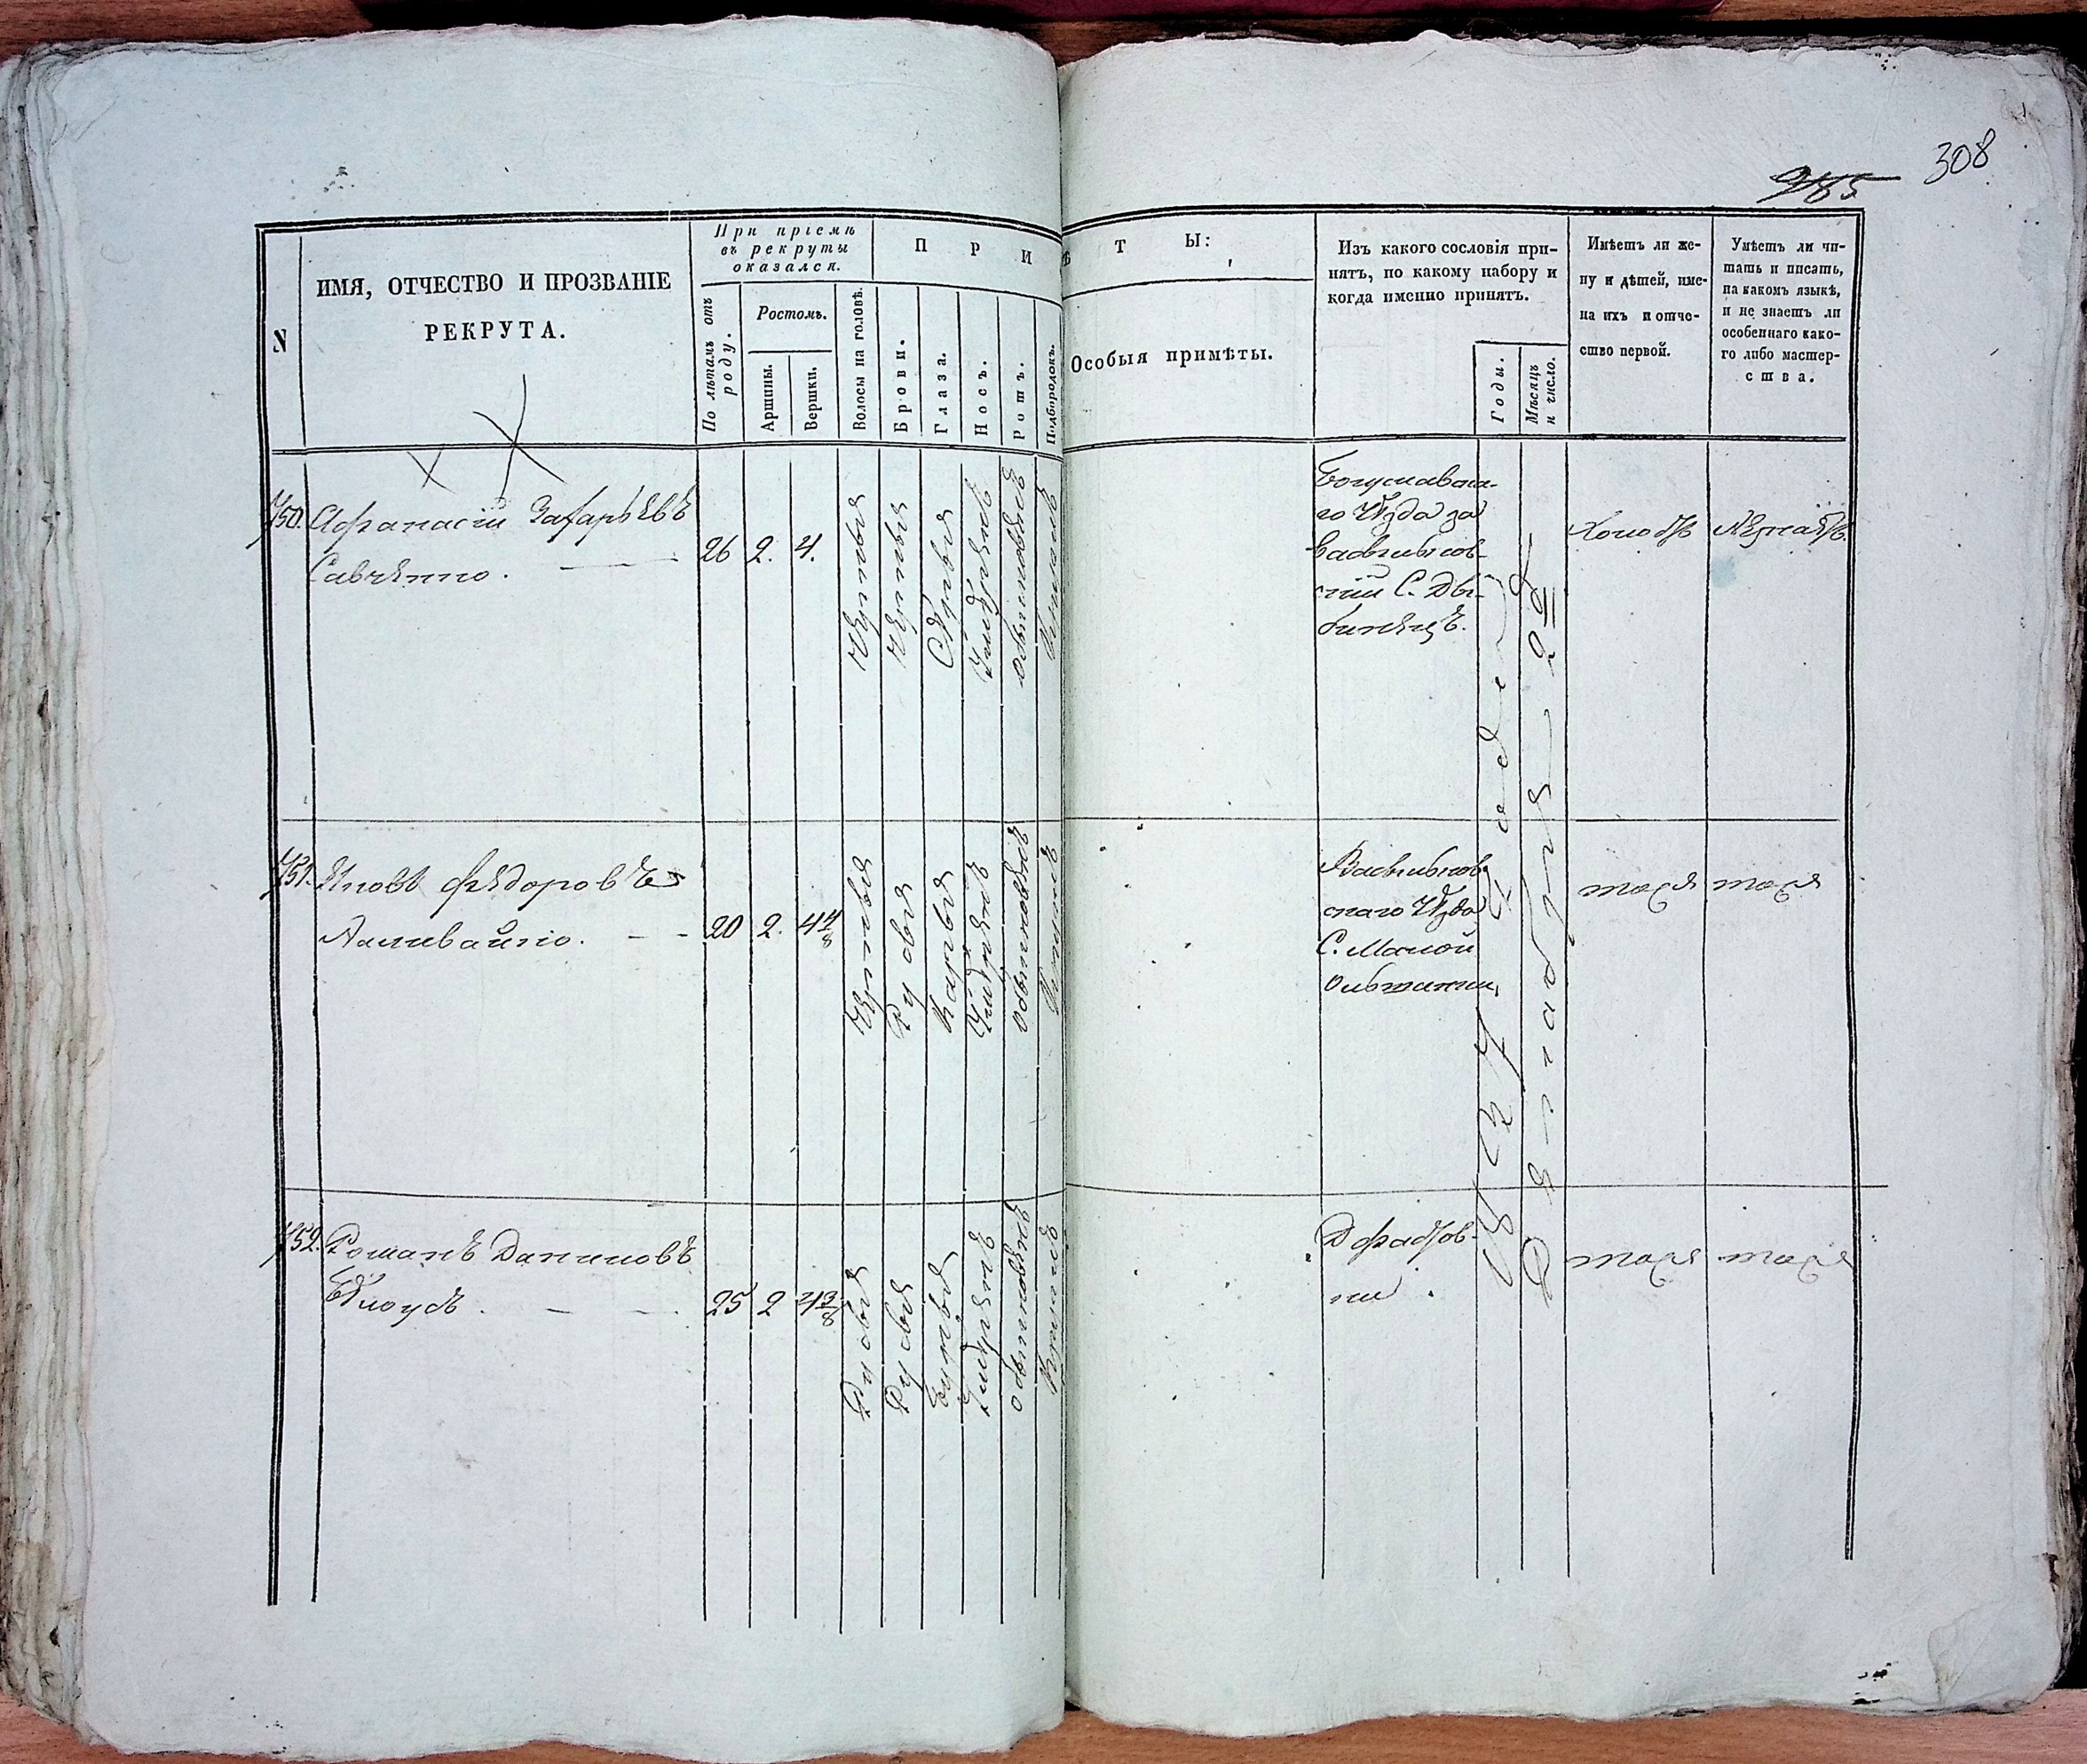 308
285
N
ИМЯ, ОТЧЕСТВО И ПРОЗВАНІЕ
РЕКРУТА.
При пріемѣ
въ рекруты
оказался.
По лѣтамъ отъ
роду.
Ростомъ.
Аршины.
Вершки.
П Р И
Волосы на головѣ.
Брови.
Глаза.
Носъ.
Ротъ.
Подбородокъ.
Ѣ Т Ы:
Особыя примѣты.
Изъ какого сословія при-
нятъ, по какому набору и
когда именно принятъ.
Годы.
Мѣсяцъ
и число.
Имѣетъ ли же-
ну и дѣтей, име-
на ихъ и отче-
ство первой.
Умѣетъ ли чи-
тать и писать,
на какомъ языкѣ,
и не знаетъ ли
особеннаго како-
го либо мастер-
ства.
750. Афанасій Захарьевъ
Савченко.
26 2. 4.
Черныя
Черныя
Сѣрыя
Умѣренъ
обыкновенъ
Богуславска-
го Уѣзда за
Васильков-
скій С.
Холостъ
Незнаетъ
751. Яковъ Федоровъ
Наливайко.
20 2. 4 4/8
Черныя
Русыя
Карыя
Умѣренъ
обыкновенъ
Васильков-
скаго Уѣзда
С. Малой
ольшанки
тоже
тоже
752. Романъ Даниловъ
Бѣлоусъ.
25 2 4 3/8
Русыя
Русыя
Умѣренъ
обыкновенъ
тоже
тоже
1827 года
Декабря 22